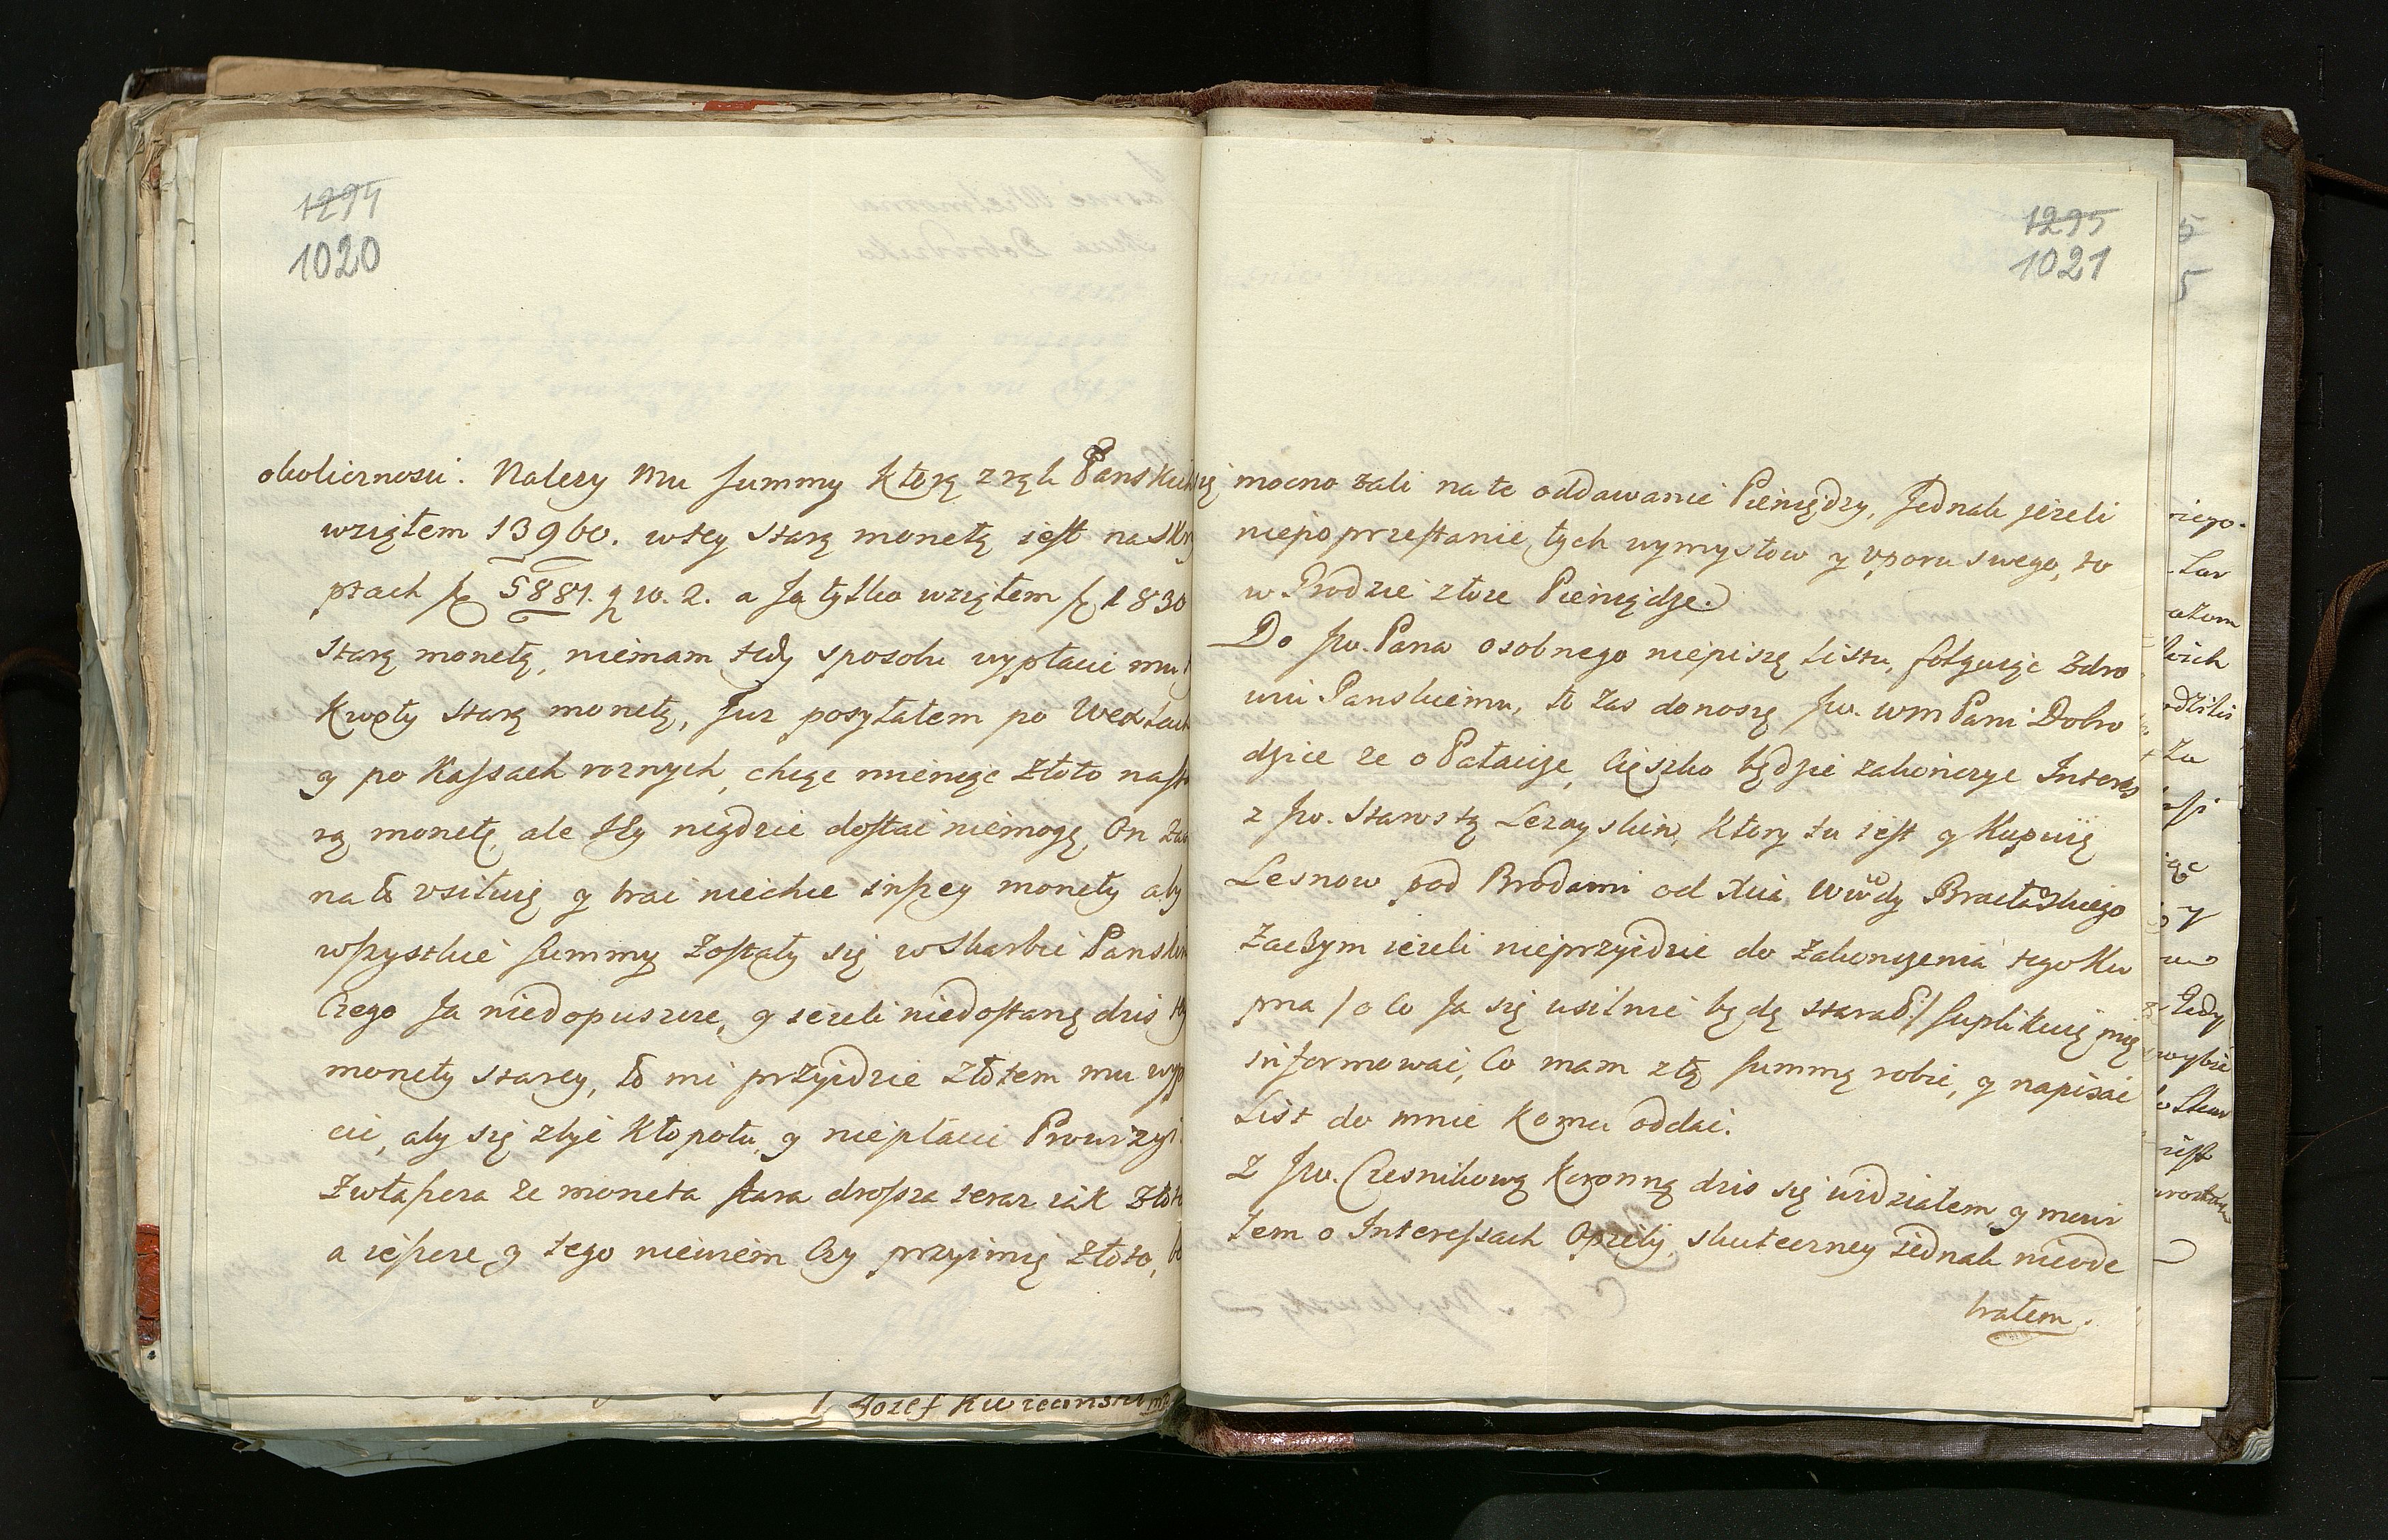 1294
1020
okolicznosci. Nalezy mu summy ktorą z rąk Panskich
wziąłem 13960. w tey starą monetą iest na skry
ptach fx 5881. g 10. 2. a Ja tylko wziąłem fx 1830
starą monetą, niemam tedy sposobu wypłacic mu
kwoty starą monetą, Juz posyłałem po Wexlach
y po Kassach roznych, chcąc mieniąc złoto na sta
rą monetę, ale iey nigdzie dostać niemogę, On zaś
na to vsiłuię y brać niechce inszey monety aby
wszystkie summy zostały się w Skarbie Panskim
Czego Ja niedopuszcze, y iezeli niedostanę dzis tey
monety starey, to mi przyidzie złotem mu wypła
cić, aby się zbyć kłopotu, y niepłacić Prowizyi
zwłaszcza ze moneta stara drozsza teraz iak złoto
a ieszcze y tego niewiem czy przyimię złoto, bo
Jozef Kwiecinski mp
1295
1021
się mocno zali na te oddawanie Pieniędzy, Jednak jezeli
niepoprzestanie tych wymysłow y vporu swego, to
w Grodzie złoze Pieniądze.
Do Jw. Pana osobnego niepiszę Listu, folguiąc zdro
wiu Panskiemu, to zas donoszę Jw. wm Pani Dobro
dzice ze o Pałacyk, Cięszko będzie zakończyc Interes
z Jw. Starostą Lezayskim, ktory tu iest y kupuię
Lesnow pod Brodami od Xcia Wwdy Bracławskiego
Zaczym iezeli nieprzyidzie do zakonczenia tego Ku
pna /o co Ja się usilnie będę starał/ suplikuię mię
informować, Co mam z tą summą robic, y napisać
List do mnie komu oddać.
Z Jw. Czesnikową Koronną dzis się widziałem y mowi
łem o Interessach Opieki, skuteczney iednak nieode
brałem.